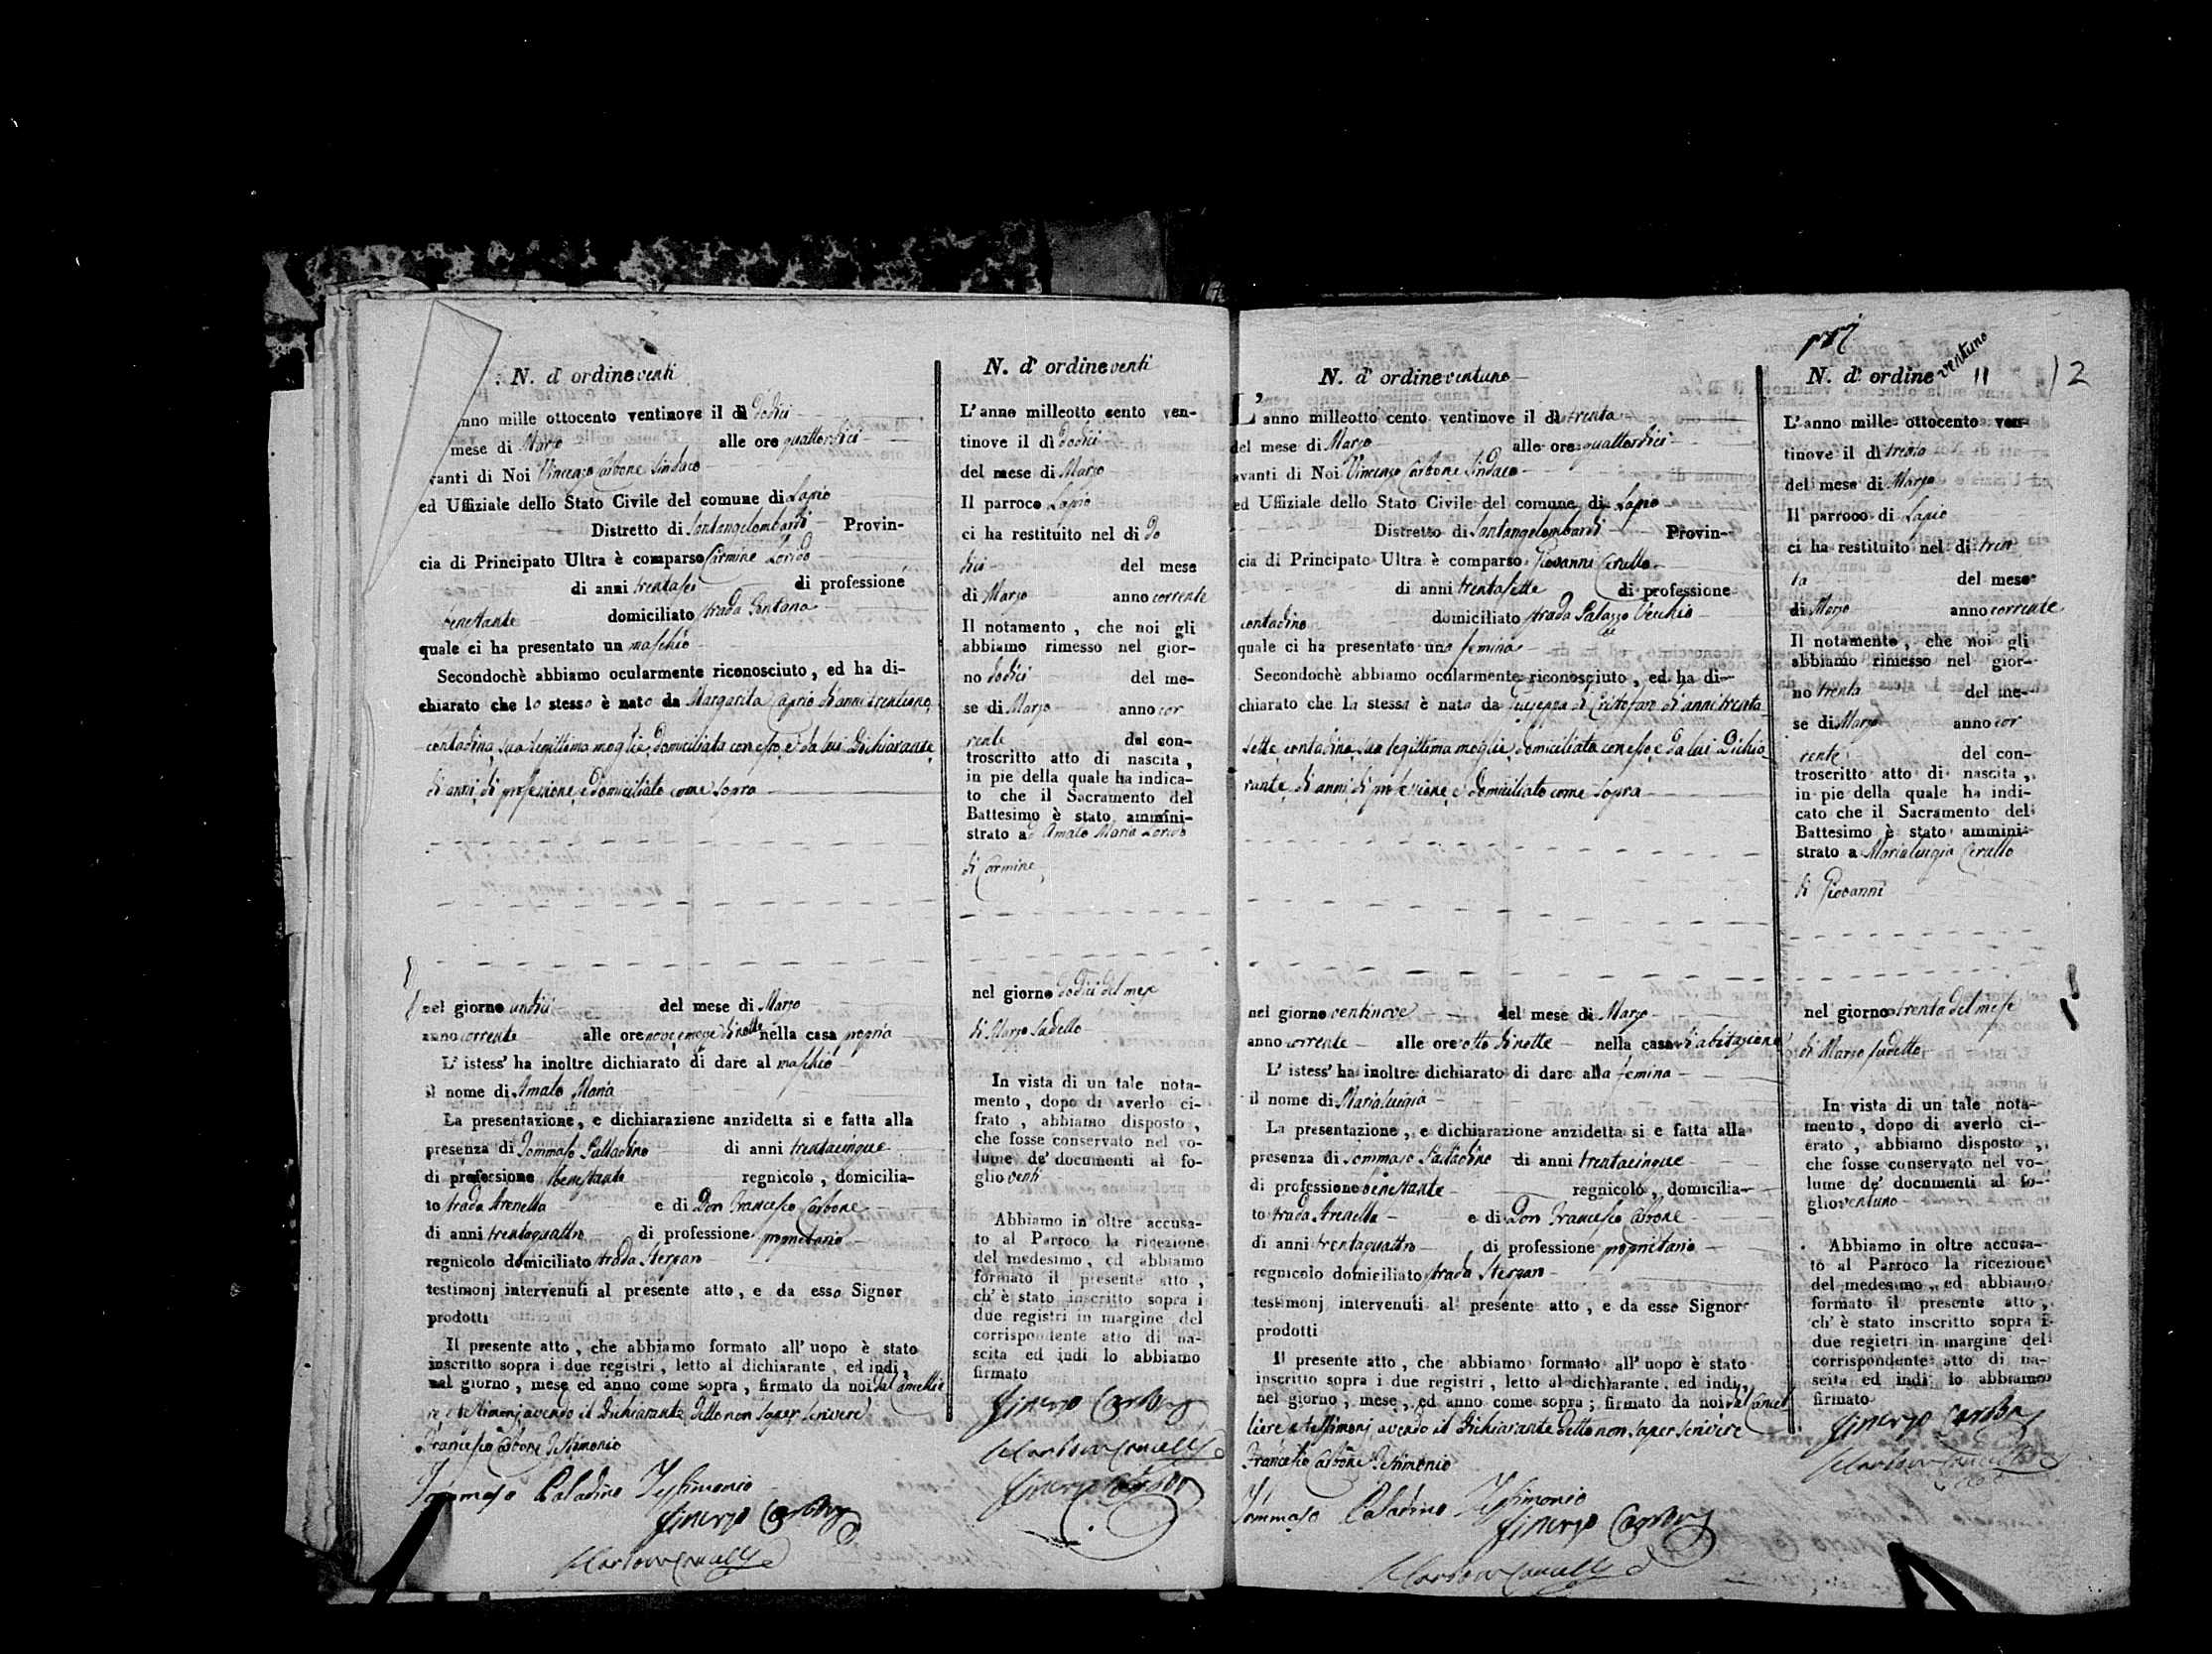 N. d' ordine venti
anno mille ottocento ventinove il dì dodici
mese di Marzo alle ore quattordici
vanti di Noi Vincenzo Carbone Sindaco
ed Uffiziale dello Stato Civile del comune di Lapio
Distretto di Santangelombardi Provin-
cia di Principato Ultra è comparso Carmine
di anni trentasei di professione
benestante domiciliato strada Fontana
quale ci ha presentato un maschio
Secondochè abbiamo ocularmente riconosciuto, ed ha di-
chiarato che lo stesso è nato da Margarita Caprio di anni trentuno,
contadina, sua legittima moglie, domiciliata con esso, e da lui Dichiarante,
di anni, di professione, e domiciliato come sopra
nel giorno undici del mese di Marzo
anno corrente alle ore nove e mezze di notte nella casa propria
L' istess' ha inoltre dichiarato di dare al maschio
il nome di Amato Maria
La presentazione, e dichiarazione anzidetta si e fatta alla
presenza di Tommaso Palladino di anni trentacinque
di professione benestante regnicolo, domicilia-
to strada Arenella e di Don Francesco Carbone
di anni trentaquattro di professione proprietario
regnicolo domiciliato strada Sterpan
testimonj intervenuti al presente atto, e da esso Signor
prodotti
Il presente atto, che abbiamo formato all' uopo è stato
inscritto sopra i due registri, letto al dichiarante, ed indi,
nel giorno, mese ed anno come sopra, firmato da noi dal Cancellie
re e testimonj avendo il Dichiarante detto non saper scrivere
Francesco Carbone Testimonio
Tommaso Paladino Testimonio
N. d' ordine venti
L' anno milleotto cento ven-
tinove il dì dodici
del mese di Marzo
Il parroco Lapio
ci ha restituito nel di do
dici del mese
di Marzo anno corrente
Il notamento, che noi gli
abbiamo rimesso nel gior-
no dodici del me-
se di Marzo anno cor
rente del con-
troscritto atto di nascita,
in pie della quale ha indica-
to che il Sacramento del
Battesimo è stato ammini-
strato ad Amato Maria
di Carmine
nel giorno dodici del mese
di Marzo sudetto
In vista di un tale nota-
mento, dopo di averlo ci-
frato, abbiamo disposto,
che fosse conservato nel vo-
lume de' documenti al fo-
glio venti
Abbiamo in oltre accusa-
to al Parroco la ricezione
del medesimo, ed abbiamo
formato il presente atto,
ch' è stato inscritto sopra i
due registri in margine del
corrispondente atto di na-
scita ed indi lo abbiamo
firmato
N. d' ordine ventuno
L' anno milleotto cento ventinove il dì trenta
del mese di Marzo alle ore quattordici
avanti di Noi Vincenzo Carbone Sindaco
ed Uffiziale dello Stato Civile del comune di Lapio
Distretto di Santangelombardi Provin-
cia di Principato Ultra è comparso Giovanni Cerullo
di anni trentasette di professione
contadino domiciliato strada Palazzo Vecchio
quale ci ha presentato una femina
Secondochè abbiamo ocularmente riconosciuto, ed ha di-
chiarato che la stessa è nata da Giuseppa di Cristofaro di anni trenta
sette, contadina, sua legittima moglie, domiciliata con esso, e da lui Dichia
rante, di anni, di professione, e domiciliato come sopra
nel giorno ventinove del mese di Marzo
anno corrente alle ore otto di notte nella casa di abitazione
L' istess' ha inoltre dichiarato di dare alla femina
il nome di Marialuigia
La presentazione, e dichiarazione anzidetta si e fatta alla
presenza di Tommaso Palladino di anni trentacinque
di professione benestante regnicolo, domicilia-
to strada Arenella e di Don Francesco Carbone
di anni trentaquattro di professione proprietario
regnicolo domiciliato strada Sterpan
testimonj intervenuti al presente atto, e da esso Signor
prodotti
Il presente atto, che abbiamo formato all' uopo è stato
inscritto sopra i due registri, letto al dichiarante, ed indi,
nel giorno, mese, ed anno come sopra; firmato da noi dal Cancel
liere e testimonj avendo il Dichiarante detto non saper scrivere
Francesco Carbone Testimonio
Tommaso Paladino Testimonio
N. d' ordine ventuno
11
12
L' anno mille ottocento ven-
tinove il dì trenta
del mese di Marzo
Il parroco di Lapio
ci ha restituito nel di tren
ta del mese
di Marzo anno corrente
Il notamento, che noi gli
abbiamo rimesso nel gior-
no trenta del me-
se di Marzo anno cor
rente del con-
troscritto atto di nascita,
in pie della quale ha indi-
cato che il Sacramento del
Battesimo è stato ammini-
strato a Marialuigia Cerullo
di Giovanni
nel giorno trenta del mese
di Marzo sudetto
In vista di un tale nota-
mento, dopo di averlo ci-
erato, abbiamo disposto,
che fosse conservato nel vo-
lume de' documenti al fo-
glio ventuno
Abbiamo in oltre accusa-
to al Parroco la ricezione
del medesimo, ed abbiamo
formato il presente atto,
ch' è stato inscritto sopra i
due registri in margine del
corrispondente atto di na-
scita ed indi lo abbiamo
firmato